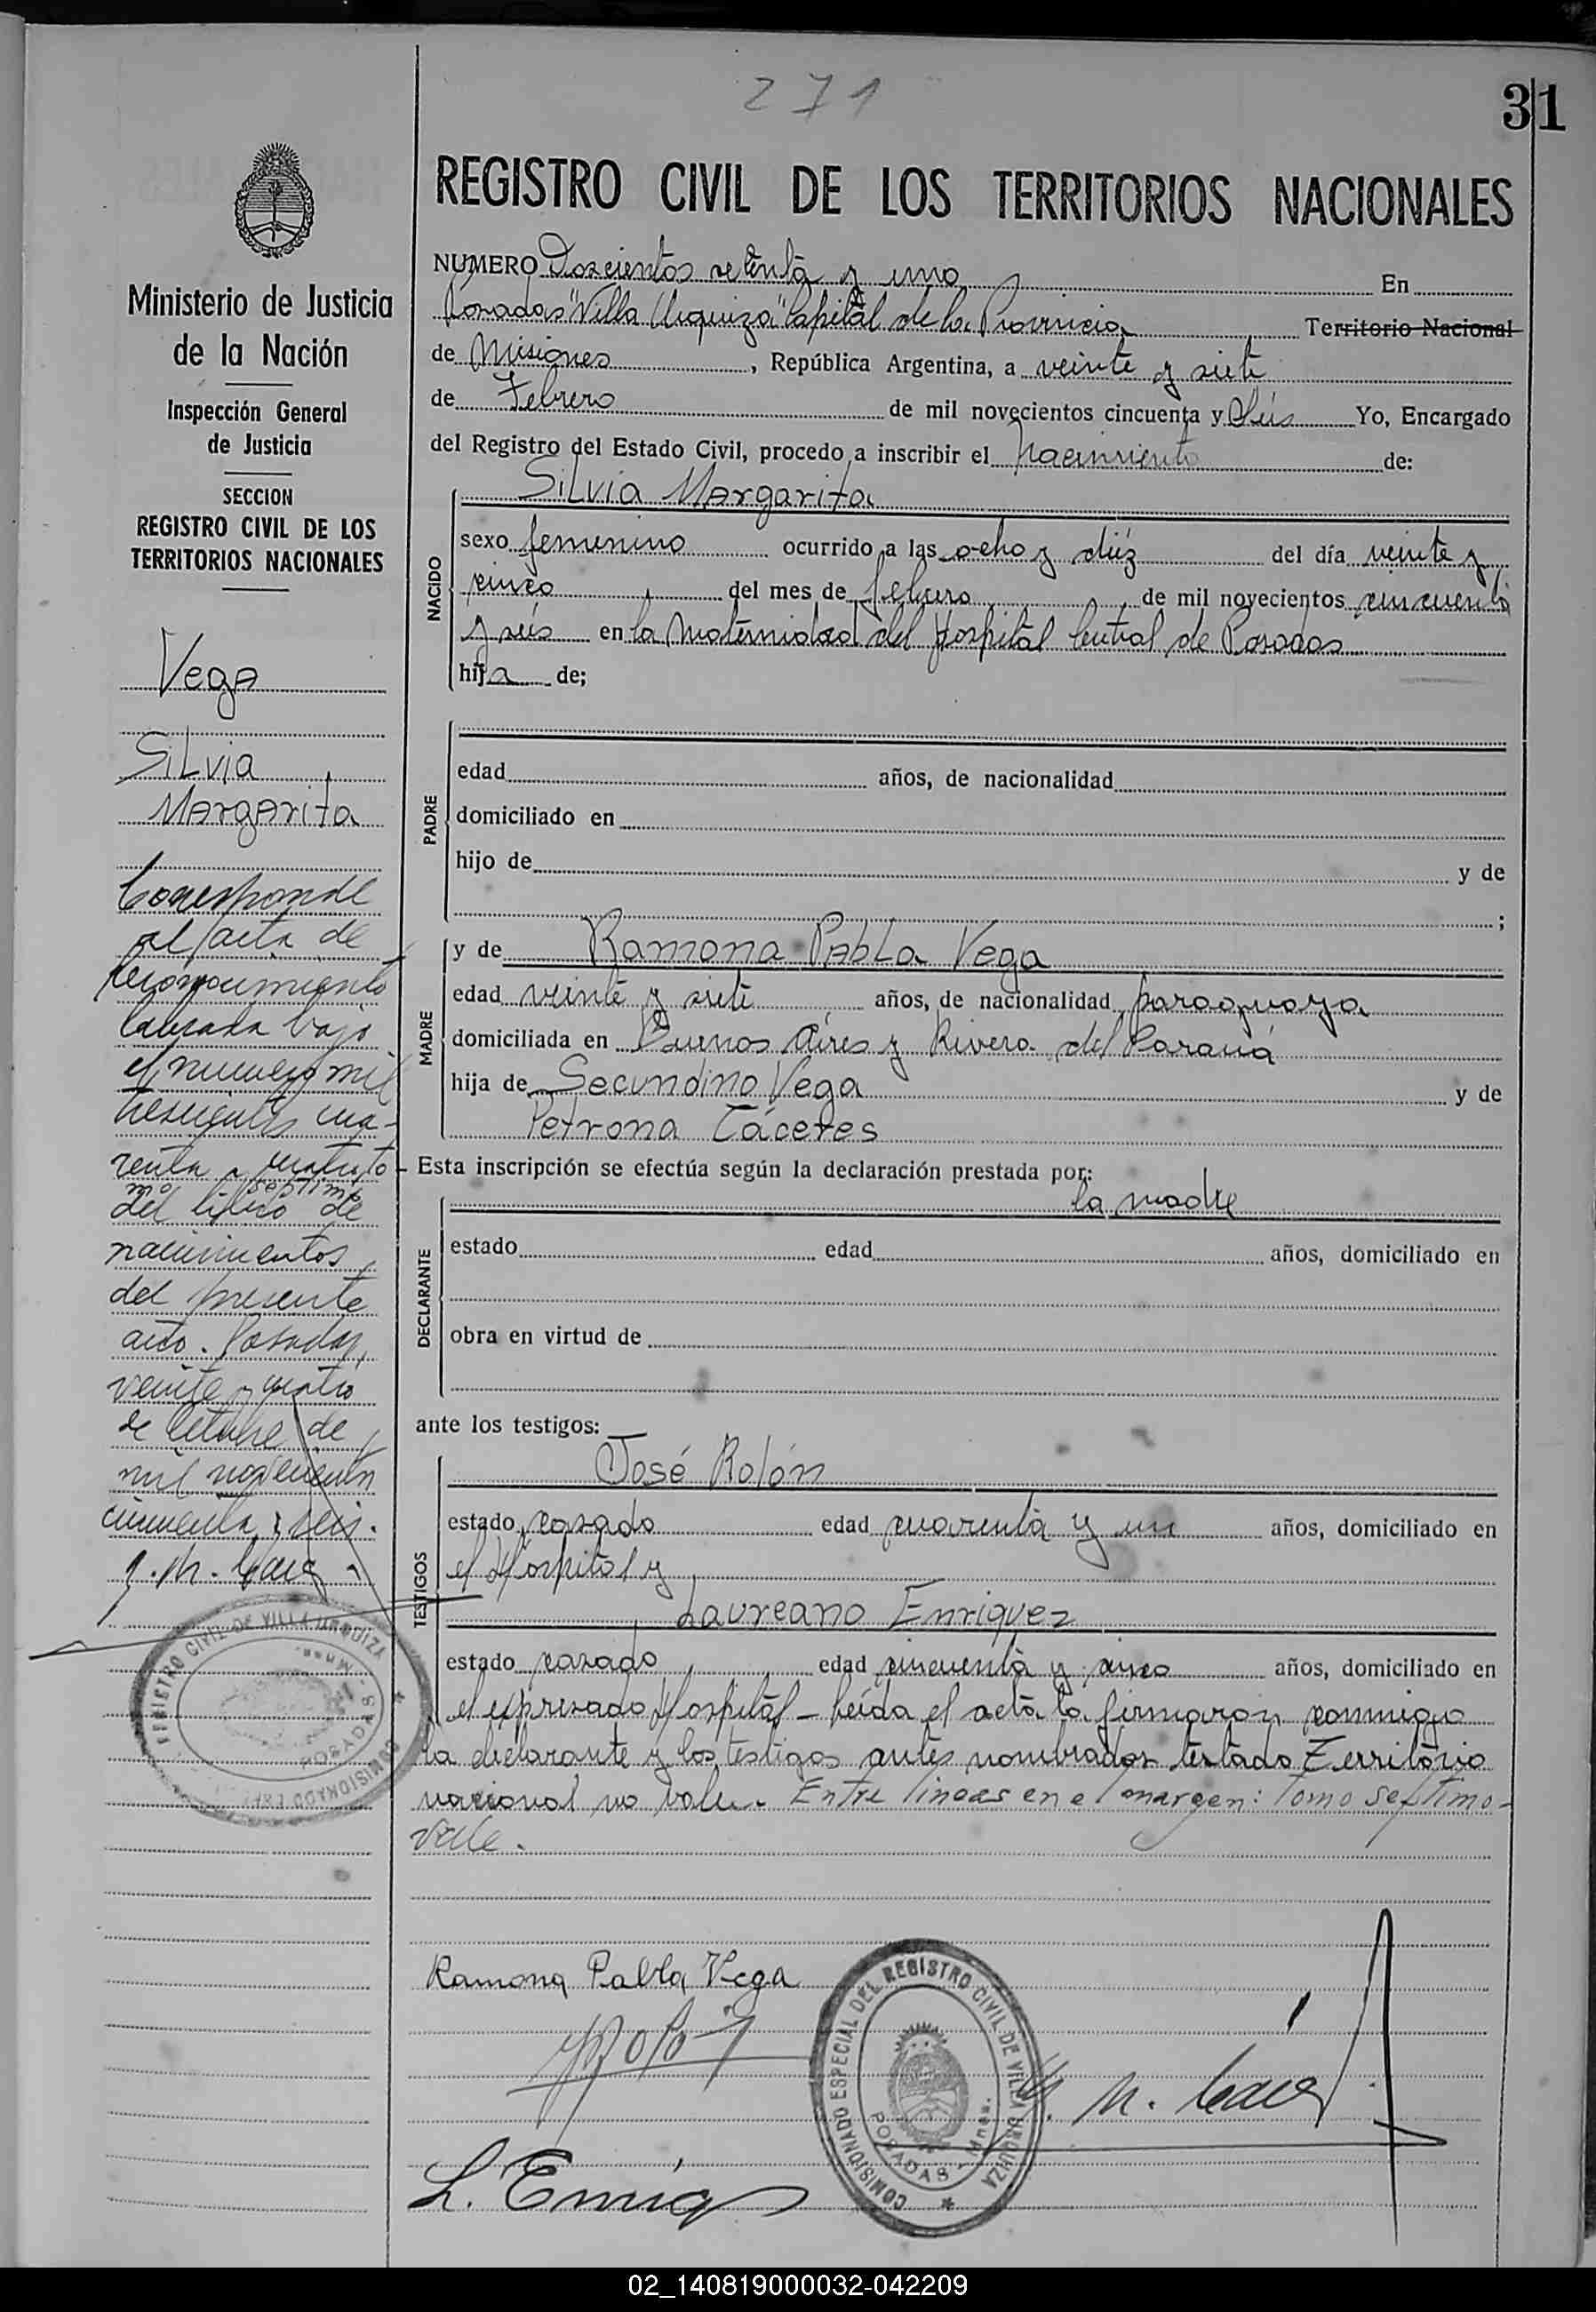 271
31
REGISTRO CIVIL DE LOS TERRITORIOS NACIONALES
Ministerio de Justicia
de la Nación
Inspección General
de Justicia
SECCION
REGISTRO CIVIL DE LOS
TERRITORIOS NACIONALES
Vega
Silvia
Margarita
Corresponde
al acta de
reconocimiento
labrada bajo
el número mil
trescientos cua-
renta y cuatro to-
mo septimo
del libro de
nacimientos
del presente
año. Posadas,
veinte y cuatro
de Octubre de
mil novecientos
cincuenta y seis.
NUMERO Doscientos setenta y uno En
Posadas "Villa Urquiza" Capital de la Provincia Territorio Nacional
de Misiones, República Argentina, a veinte y siete
de Febrero de mil novecientos cincuenta y Seis Yo, Encargado
del Registro del Estado Civil, procedo a inscribir el nacimiento de:
NACIDO
Silvia Margarita
sexo femenino ocurrido a las ocho y diéz del día veinte y
cinco del mes de febrero de mil novecientos cincuenta
y seis en la Maternidad del Hospital Central de Posadas
hija de;
PADRE
edad años, de nacionalidad
domiciliado en
hijo de y de
;
MADRE
y de Ramona Pabla Vega
edad veinte y siete años, de nacionalidad paraguaya
domiciliada en Buenos Aires y Rivera del Paraná
hija de Secundino Vega y de
Petrona Cáceres
Esta inscripción se efectúa según la declaración prestada por:
la madre
DECLARANTE
estado edad años, domiciliado en
obra en virtud de
ante los testigos:
TESTIGOS
José Rolón
estado casado edad cuarenta y un años, domiciliado en
el Hospital y
Laureano Enriquez
estado casado edad cincuenta y cinco años, domiciliado en
el expresado Hospital - Leída el acta la firmaron conmigo
la declarante y los testigos antes nombrados testado Territorio
nacional no vale. Entre lineas en el margen: Tomo septimo-
vale.
Ramona Pabla Vega
COMISIONADO ESPECIAL DEL REGISTRO CIVIL DE VILLA URQUIZA
POSADAS - Mnes.
02_140819000032-042209